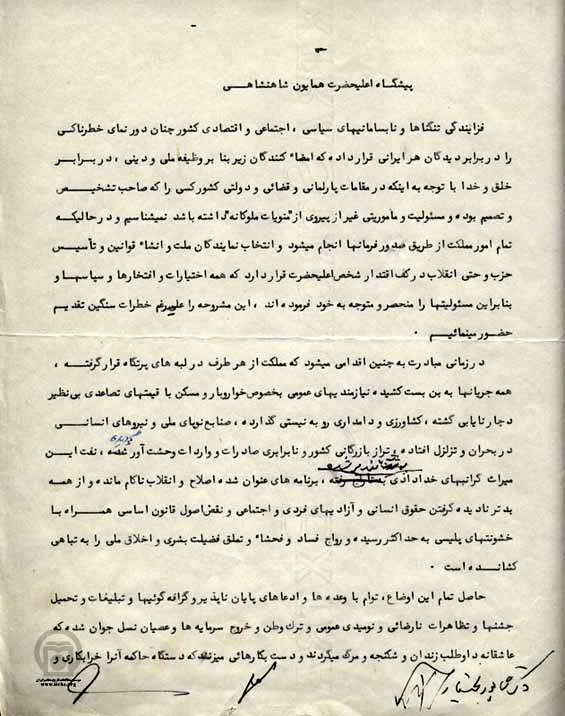 پیشگاه اعلیحضرت همایون شاهنشاهی
فزایندگی تنگناها و نابسامانیهای سیاسی ، اجتماعی و اقتصادی کشور چنان دور نمای خطرناکی
را در برابر دیدگان هر ایرانی قرار داده که امضاء کنندگان زیر بنا بر وظیفه ملی و دینی ، در برابر
خلق و خدا با توجه به اینکه در مقامات پارلمانی و قضائی و دولتی کشور کسی را که صاحب تشخیص
و تصمیم بوده و مسئولیت و ماموریتی غیر از پیروی از "منویات ملوکانه" داشته باشد نمیشناسیم و در حالیکه
تمام امور مملکت از طریق صدور فرمانها انجام میشود و انتخاب نمایندگان ملت و انشاء قوانین و تأسیس
حزب و حتی انقلاب در کف اقتدار شخص اعلیحضرت قرار دارد که همه اختیارات و افتخارها و سپاسها و
بنابراین مسئولیتها را منحصر و متوجه به خود فرموده اند ، این مشروحه را علیرغم خطرات سنگین تقدیم
حضور مینمائیم .
در زمانی مبادرت به چنین اقدامی میشود که مملکت از هر طرف در لبه های پرتگاه قرار گرفته ،
همه جریانها به بن بست کشیده نیازمندیهای عمومی بخصوص خواروبار و مسکن با قیمتهای تصاعدی بی نظیر
دچار نایابی گشته ، کشاورزی و دامداری رو به نیستی گذارده ، صنایع نوپای ملی و نیروهای انسانی
در بحران و تزلزل افتاده ، تراز بازرگانی کشور و نابرابری صادرات و واردات وحشت آور گردیده ، نفت این
میراث گرانبهای خدادادی ، برنامه های عنوان شده اصلاح و انقلاب ناکام مانده و از همه
بدتر نادیده گرفتن حقوق انسانی و آزادیهای فردی و اجتماعی و نقض اصول قانون اساسی همراه با
خشونتهای پلیسی به حداکثر رسیده و رواج فساد و فحشاء و تملق فضیلت بشری و اخلاق ملی را به تباهی
کشانده است .
حاصل تمام این اوضاع ، توام با وعده ها و ادعاهای پایان ناپذیر و گزافه گوئیها و تبلیغات و تحمیل
جشنها و تظاهرات نارضائی و نومیدی عمومی و ترک وطن و خروج سرمایه ها و عصیان نسل جوان شده که
عاشقانه داوطلب زندان و شکنجه و مرگ میگردند و دست بکارهائی میزنند که دستگاه حاکمه آنرا خرابکاری و
دکتر شاپور بختیار